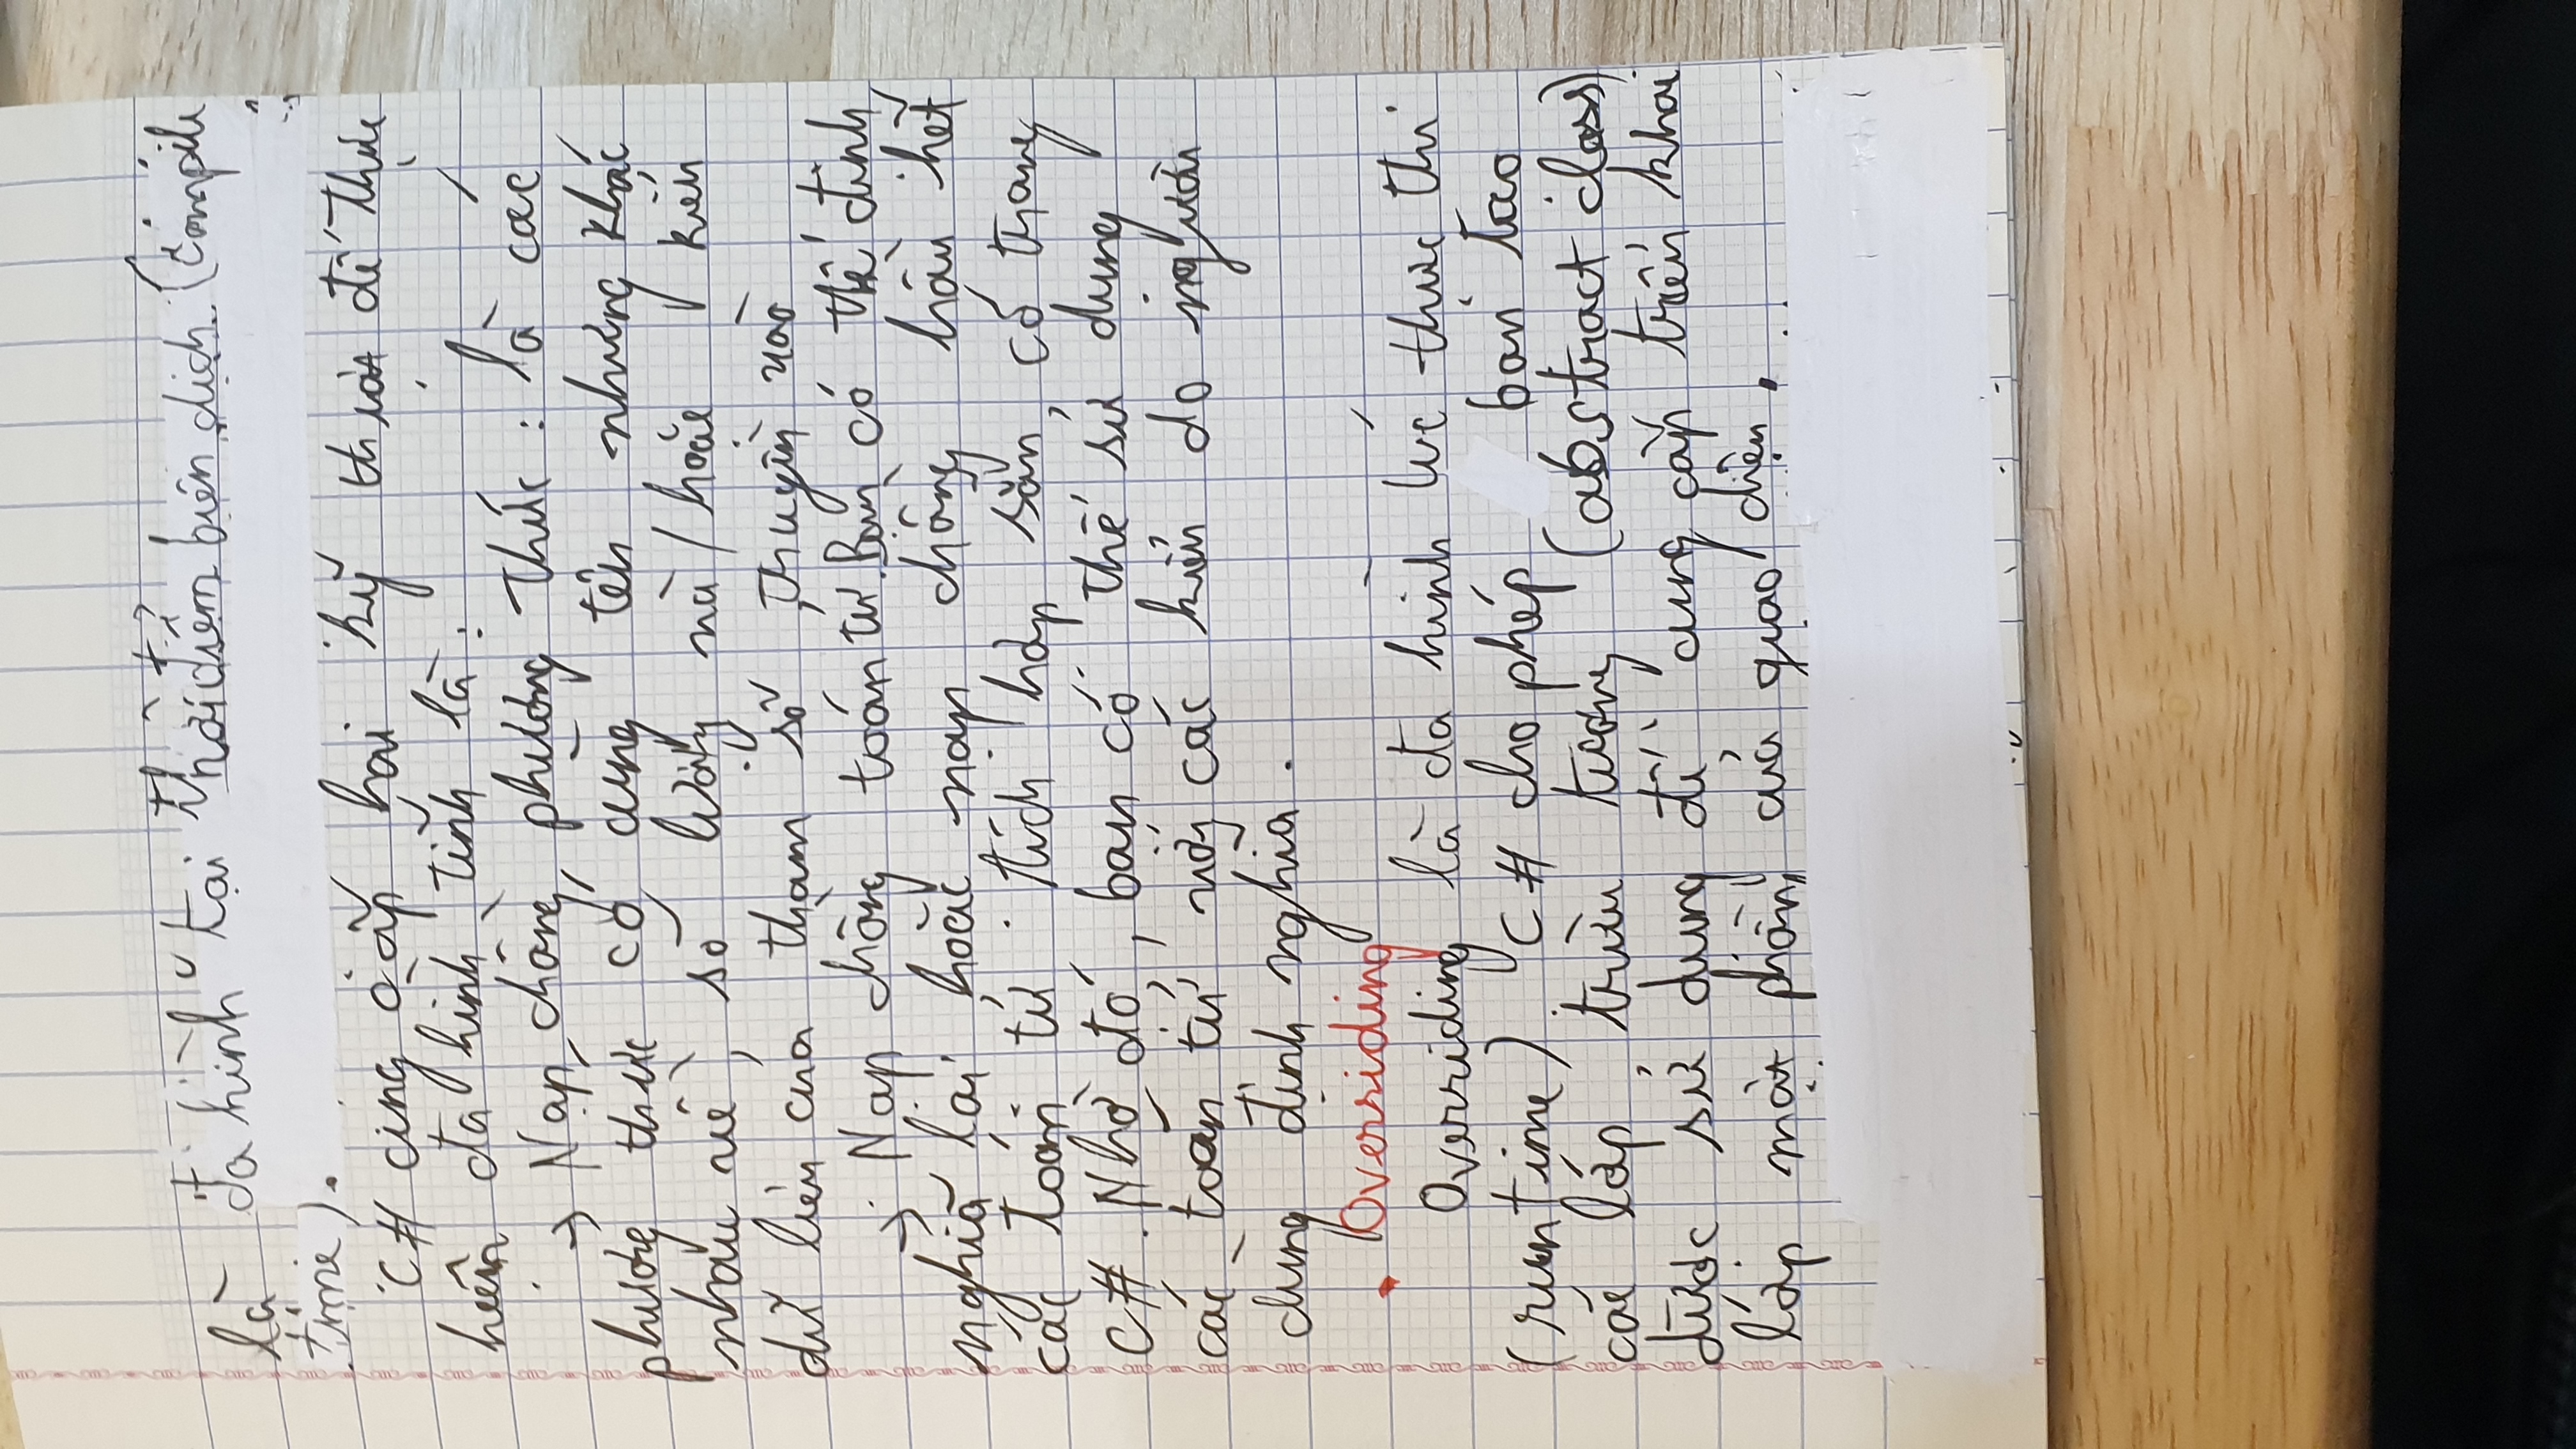 là đa hình tại thời điểm biên dịch (compile
time).
C# cung cấp hai kỹ thuật để thực
hiện đa hình tĩnh là:
→ Nạp chồng phương thức: là các
phương thức có cùng tên nhưng khác
nhau về số lượng và/hoặc kiểu
dữ liệu của tham số truyền vào
→ Nạp chồng toán tử. Bạn có thể định
nghĩa lại hoặc nạp chồng hầu hết
các toán tử tích hợp sẵn có trong
C#. Nhờ đó, bạn có thể sử dụng
các toán tử với các kiểu do người
dùng định nghĩa.
• Overriding
Overriding là đa hình lúc thực thi
(runtime). C# cho phép bạn tạo
các lớp trừu tượng (abstract class)
được sử dụng để cung cấp triển khai
lớp một phần của giao diện.